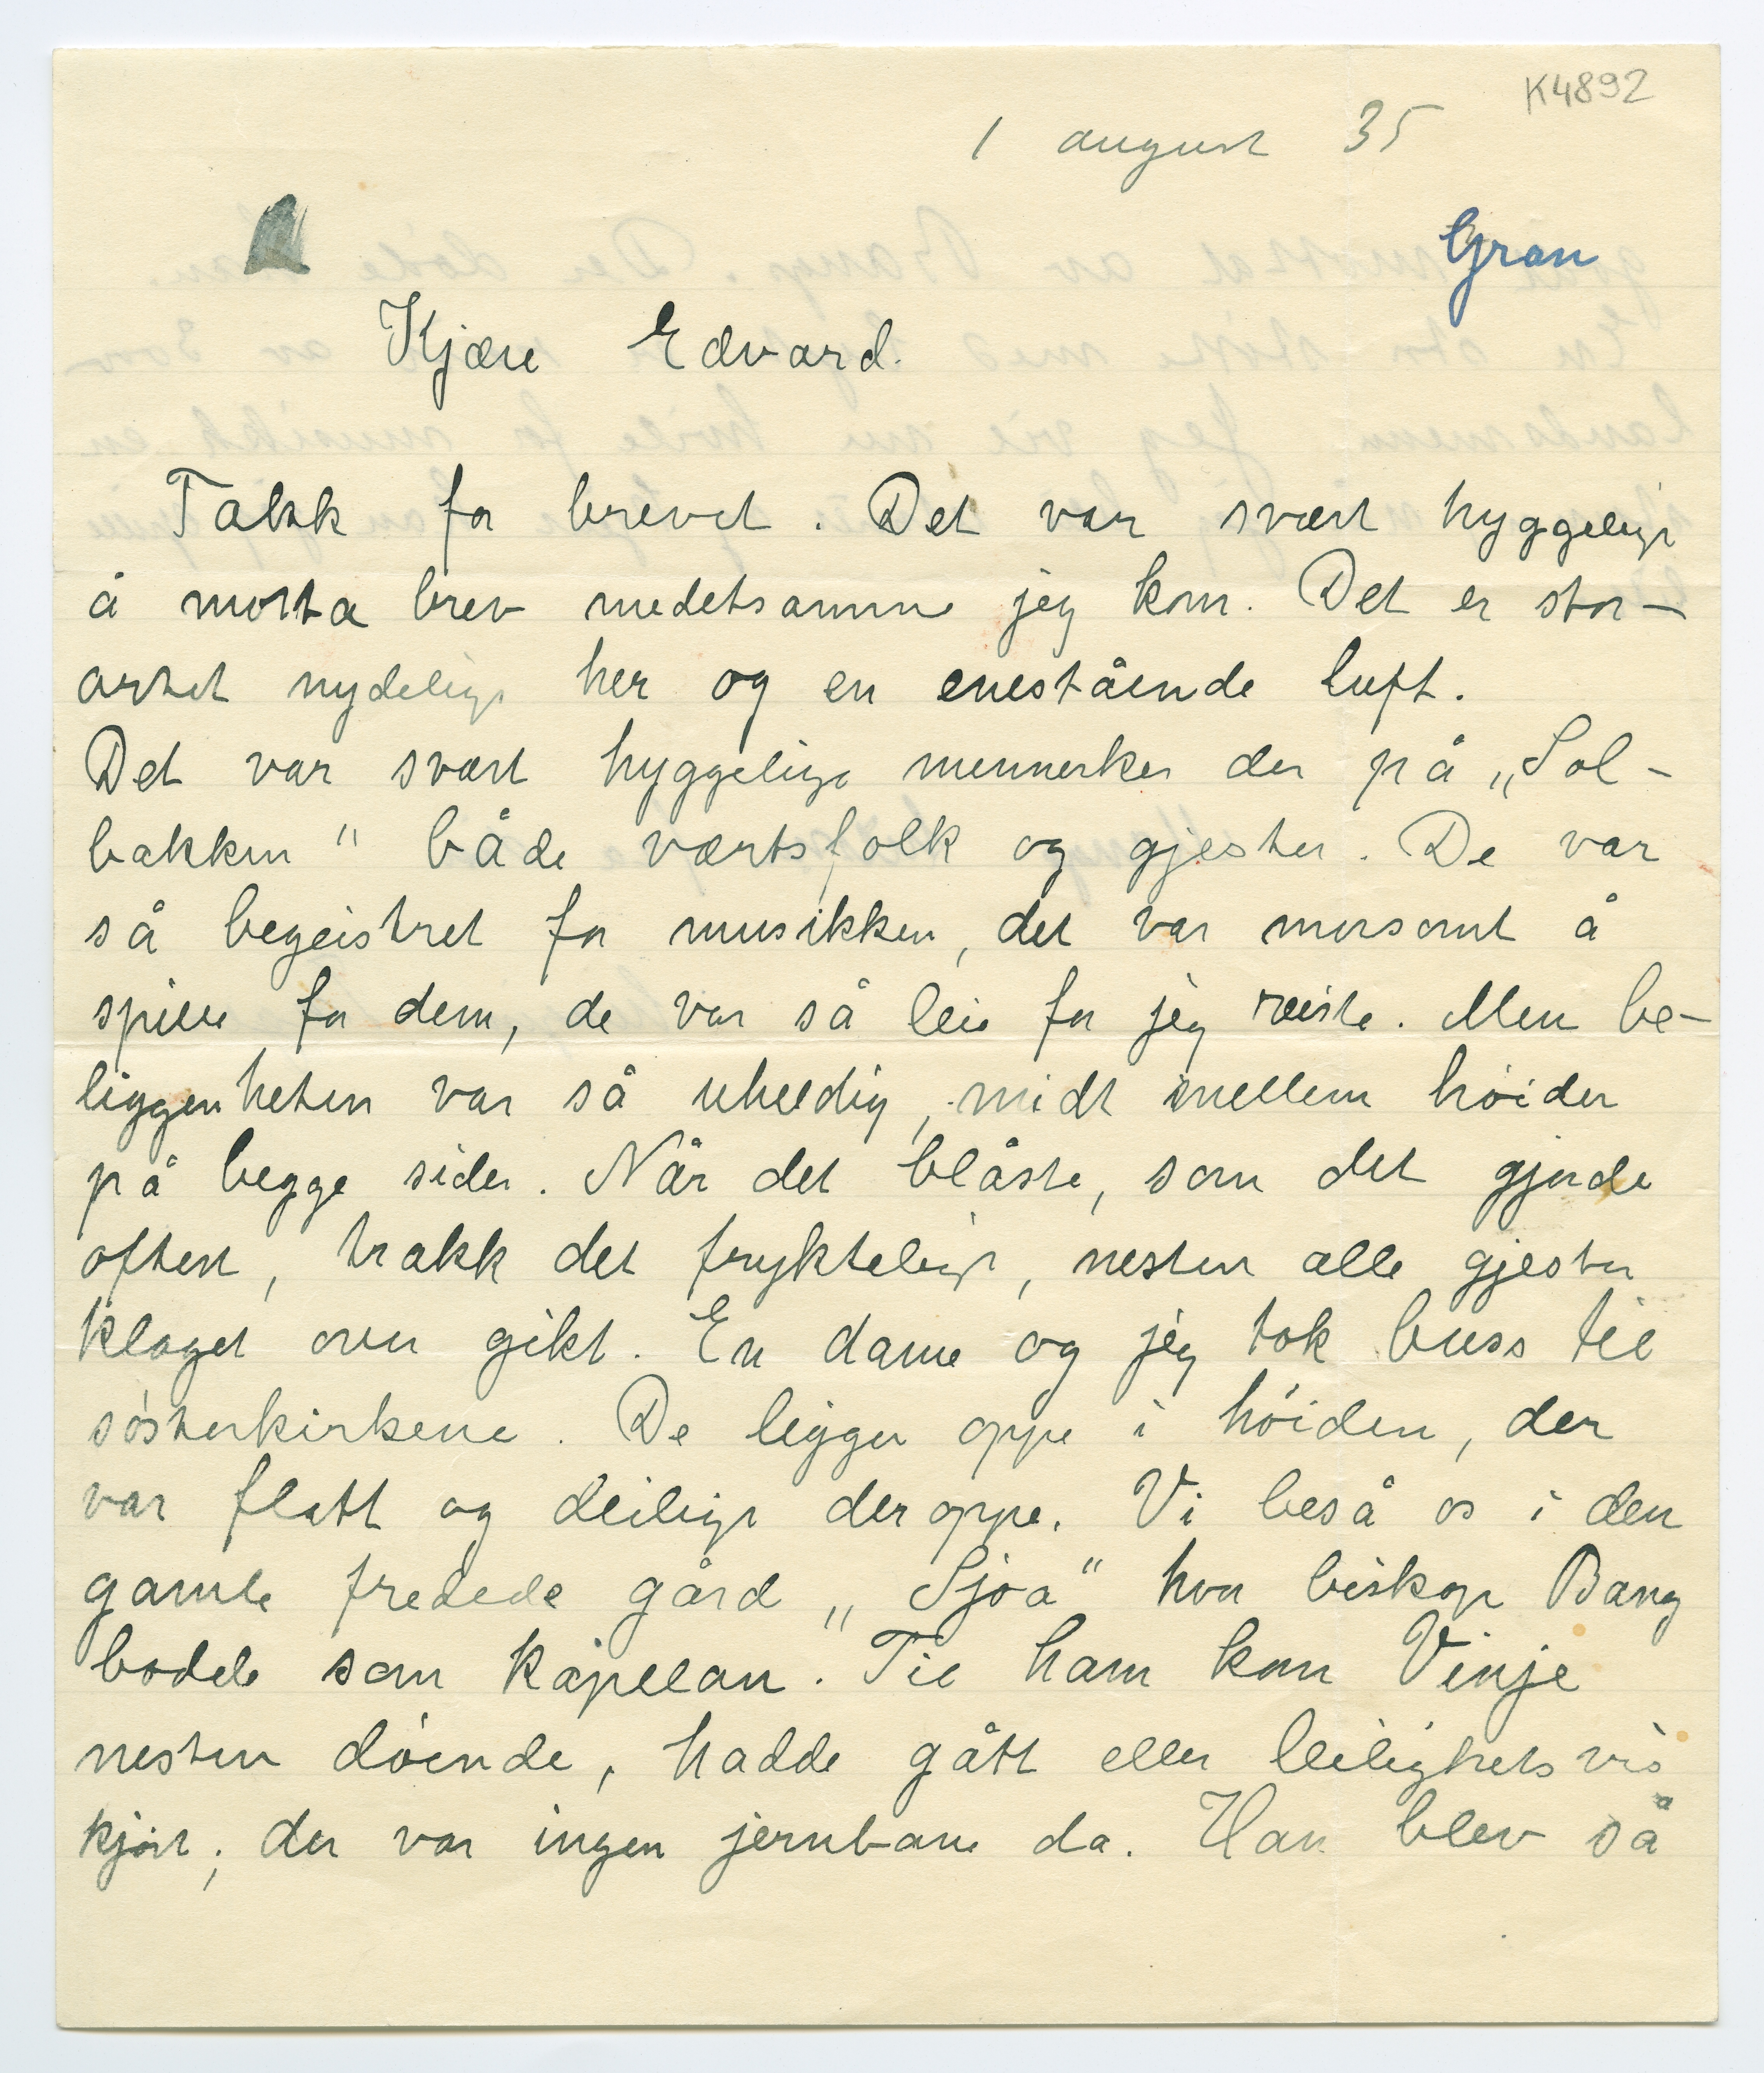 K4892
1 august 35
Gran
Kjære Edvard.
Takk for brevet. Det var svært hyggeligt
å motta brev medetsamme jeg kom. Det er stor-
artet nydeligt her og en enestående luft.
Det var svært hyggelige mennesker der på „Sol-
bakken" både værtsfolk og gjester. De var
så begeistret for musikken, det var morsomt å
spille for dem, de var så leie for jeg reiste. Men be-
liggenheten var så uheldig, midt imellem höider
på begge sider. Når det blåste, som det gjorde
oftest, trakk det frykteligt, nesten alle gjester
klaget over gikt. En dame og jeg tok buss til
sösterkirkene. De ligger oppe i höiden, der
var flatt og deiligt der oppe. Vi beså os i den
gamle fredede gård „Sjoa" hvor biskop Bang
bodde som kapellan. Til ham kom Vinje
nesten döende, hadde gått eller leilighetsvis
kjört, der var ingen jernbane da. Han blev så